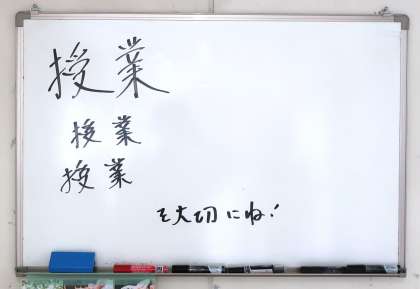 授業
授業
授業
を大切にね!